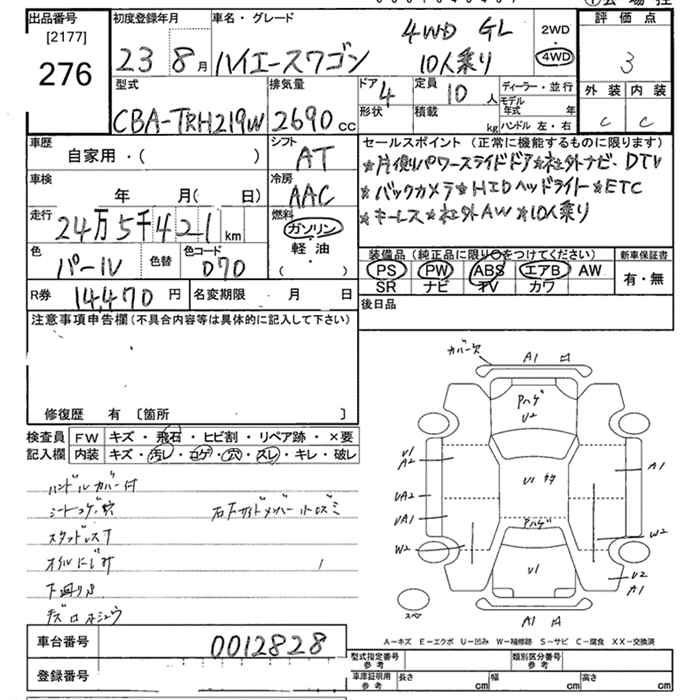 出品番号
[2177]
276
初度登録年月
23 8月
車名・グレード
ハイエースワゴン
4WD GL
10人乗り
2WD
4WD
評価点
3
外装 内装
C C
型式
CBA-TRH219W
排気量
2690cc
ドア 4
形状
定員 10人
積載 kg
ディーラー・並行
モデル年式 年
ハンドル 左・右
車歴
自家用・( )
シフト
AT
車検
年 月( 日)
冷房
AAC
走行
24万5千421km
燃料
ガソリン
・軽・油
( ・ )
色
パール
色替
色コード
070
R券 14,470円
名変期限 月 日
セールスポイント(正常に機能するものに限ります)
★片側パワースライドドア★社外ナビ・DTV
★バックカメラ★HIDヘッドライト★ETC
★キーレス★社外AW★10人乗り
装備品(純正品に限り○をつけてください)
新車保証書
PS PW ABS エアB AW
SR ナビ TV カワ
有・無
後日品
注意事項申告欄(不具合内容等は具体的に記入して下さい)
修復歴 有 [箇所 ]
検査員記入欄
FW キズ・飛石・ヒビ割・リペア跡・×要
内装 キズ・汚レ・コゲ・穴・スレ・キレ・破レ
ハンドルカバー付
シートコゲ・穴
右下サイドメンバー小ズミ
スタッドレスT
オイルにじみ
下廻りS
カバー欠
A1
Pハゲ
U2
U1
A2
U1
A1
UA2
UA1
Pハゲ
W2
W2
U1
U2
A1
スペア
A1
A-キズ E-エクボ U-凹み W-補修跡 S-サビ C-腐食 XX-交換済
車台番号
0012828
登録番号
型式指定番号参考
類別区分番号参考
車庫証明用参考
長さ cm
幅 cm
高さ cm